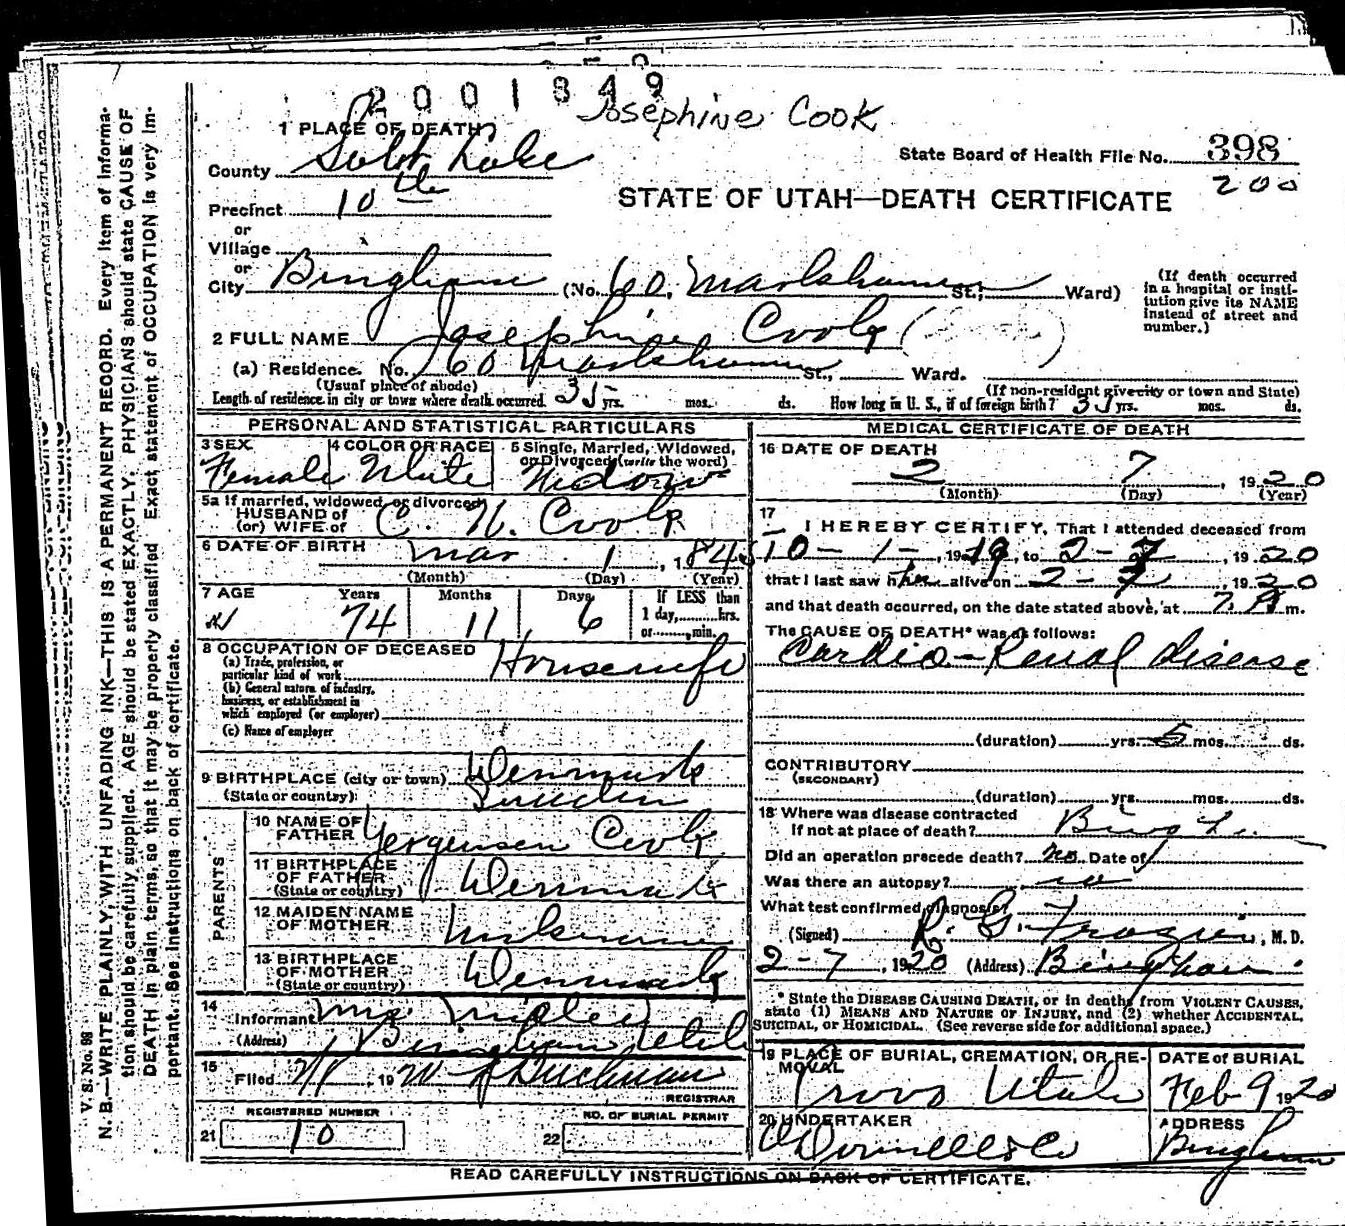 2001849
Josephine Cook
1 PLACE OF DEATH
County Salt Lake
State Board of Health File No. 398
200
Precinct 10th
STATE OF UTAH—DEATH CERTIFICATE
or
Village
or
City Bingham (No. 60, Markham St.; Ward)
(If death occurred in a hospital or institution give its NAME instead of street and number.)
2 FULL NAME Josephine Cook
(a) Residence. No. 60 Markham St., Ward.
(Usual place of abode)
(If non-resident give city or town and State)
Length of residence in city or town where death occurred 35 yrs. mos. ds. How long in U. S., if of foreign birth? 35 yrs. mos. ds.
PERSONAL AND STATISTICAL PARTICULARS
3 SEX Female
4 COLOR OR RACE White
5 Single, Married, Widowed, or Divorced (write the word) Widow
5a If married, widowed or divorced
HUSBAND of
(or) WIFE of C. N. Cook
6 DATE OF BIRTH Mar 1, 184
(Month) (Day) (Year)
7 AGE Years 74 Months 11 Days 6
If LESS than
1 day, hrs.
or min.
8 OCCUPATION OF DECEASED Housewife
(a) Trade, profession, or
particular kind of work
(b) General nature of industry,
business, or establishment in
which employed (or employer)
(c) Name of employer
9 BIRTHPLACE (city or town) Denmark
(State or country) Sweden
PARENTS
10 NAME OF
FATHER Yergensen Cook
11 BIRTHPLACE
OF FATHER
(State or country) Denmark
12 MAIDEN NAME
OF MOTHER Unknown
13 BIRTHPLACE
OF MOTHER
(State or country) Denmark
14
Informant
(Address) Bingham Utah
15
Filed 2/8, 1920
REGISTRAR
REGISTERED NUMBER
21 10
NO. OF BURIAL PERMIT
22
MEDICAL CERTIFICATE OF DEATH
16 DATE OF DEATH
2 7, 1920
(Month) (Day) (Year)
17
I HEREBY CERTIFY, That I attended deceased from
10-1-, 1919, to 2-7, 1920
that I last saw h alive on 2-7, 1920
and that death occurred, on the date stated above, at 7 A m.
The CAUSE OF DEATH* was as follows:
Cardio-Renal disease
(duration) yrs. 5 mos. ds.
CONTRIBUTORY
(SECONDARY)
(duration) yrs. mos. ds.
18 Where was disease contracted
If not at place of death?
Did an operation precede death? no Date of
Was there an autopsy? no
What test confirmed diagnosis?
(Signed) R. G. Frazier, M. D.
2-7, 1920 (Address) Bingham
* State the DISEASE CAUSING DEATH, or in deaths from VIOLENT CAUSES,
state (1) MEANS AND NATURE OF INJURY, and (2) whether ACCIDENTAL,
SUICIDAL, or HOMICIDAL. (See reverse side for additional space.)
19 PLACE OF BURIAL, CREMATION, OR REMOVAL
Provo Utah
DATE of BURIAL
Feb 9 1920
20 UNDERTAKER
ADDRESS
Bingham
READ CAREFULLY INSTRUCTIONS ON BACK OF CERTIFICATE.
V. S. No. 98
N. B.—WRITE PLAINLY WITH UNFADING INK—THIS IS A PERMANENT RECORD. Every item of information should be carefully supplied. AGE should be stated EXACTLY. PHYSICIANS should state CAUSE OF DEATH in plain terms, so that it may be properly classified. Exact statement of OCCUPATION is very important. See instructions on back of certificate.